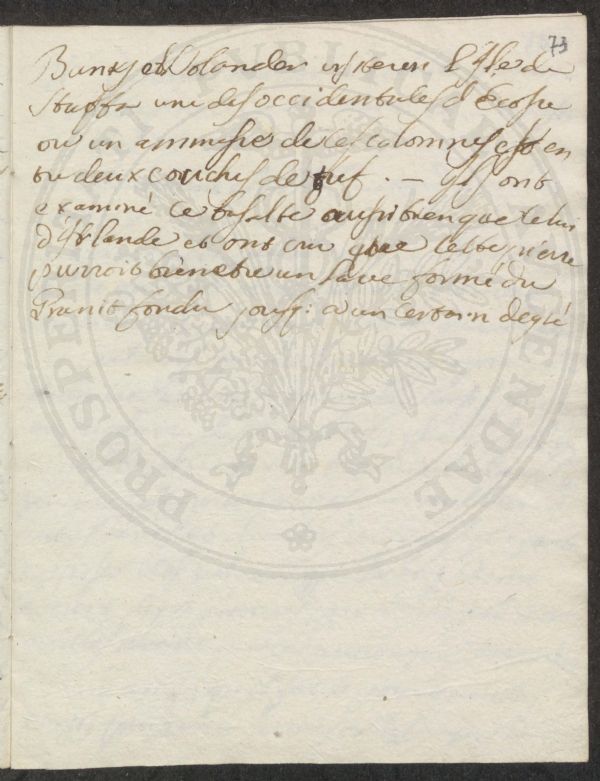 73
Banks et Solander visiteren l'Ysle de
Staffa une des occidentales d'Ecosse
ou un ammasse de ces colomnes est en
tre deux couches de tuf. — Ils ont
examiné ce basalte aussi bien que celui
d'Irlande et ont cru que cette pierre
purroit bien etre un lave formé du
Granit fondu jousq: a un certain degré
PUBLICAE
PROSPERITATI
AUGENDAE